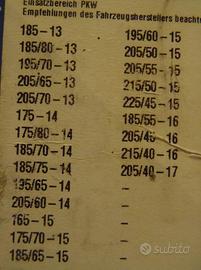 Einsatzbereich PKW
Empfehlungen des Fahrzeugherstellers beachte
185-13
185/80-13
195/70-13
205/65-13
205/70-13
175-14
175/80-14
185/70-14
185/75-14
195/65-14
205/60-14
165-15
175/70-15
185/65-15
195/60-15
205/50-15
205/55-15
215/50-15
225/45-15
185/55-16
205/45-16
215/40-16
205/40-17
–
–
–
–
–
subito